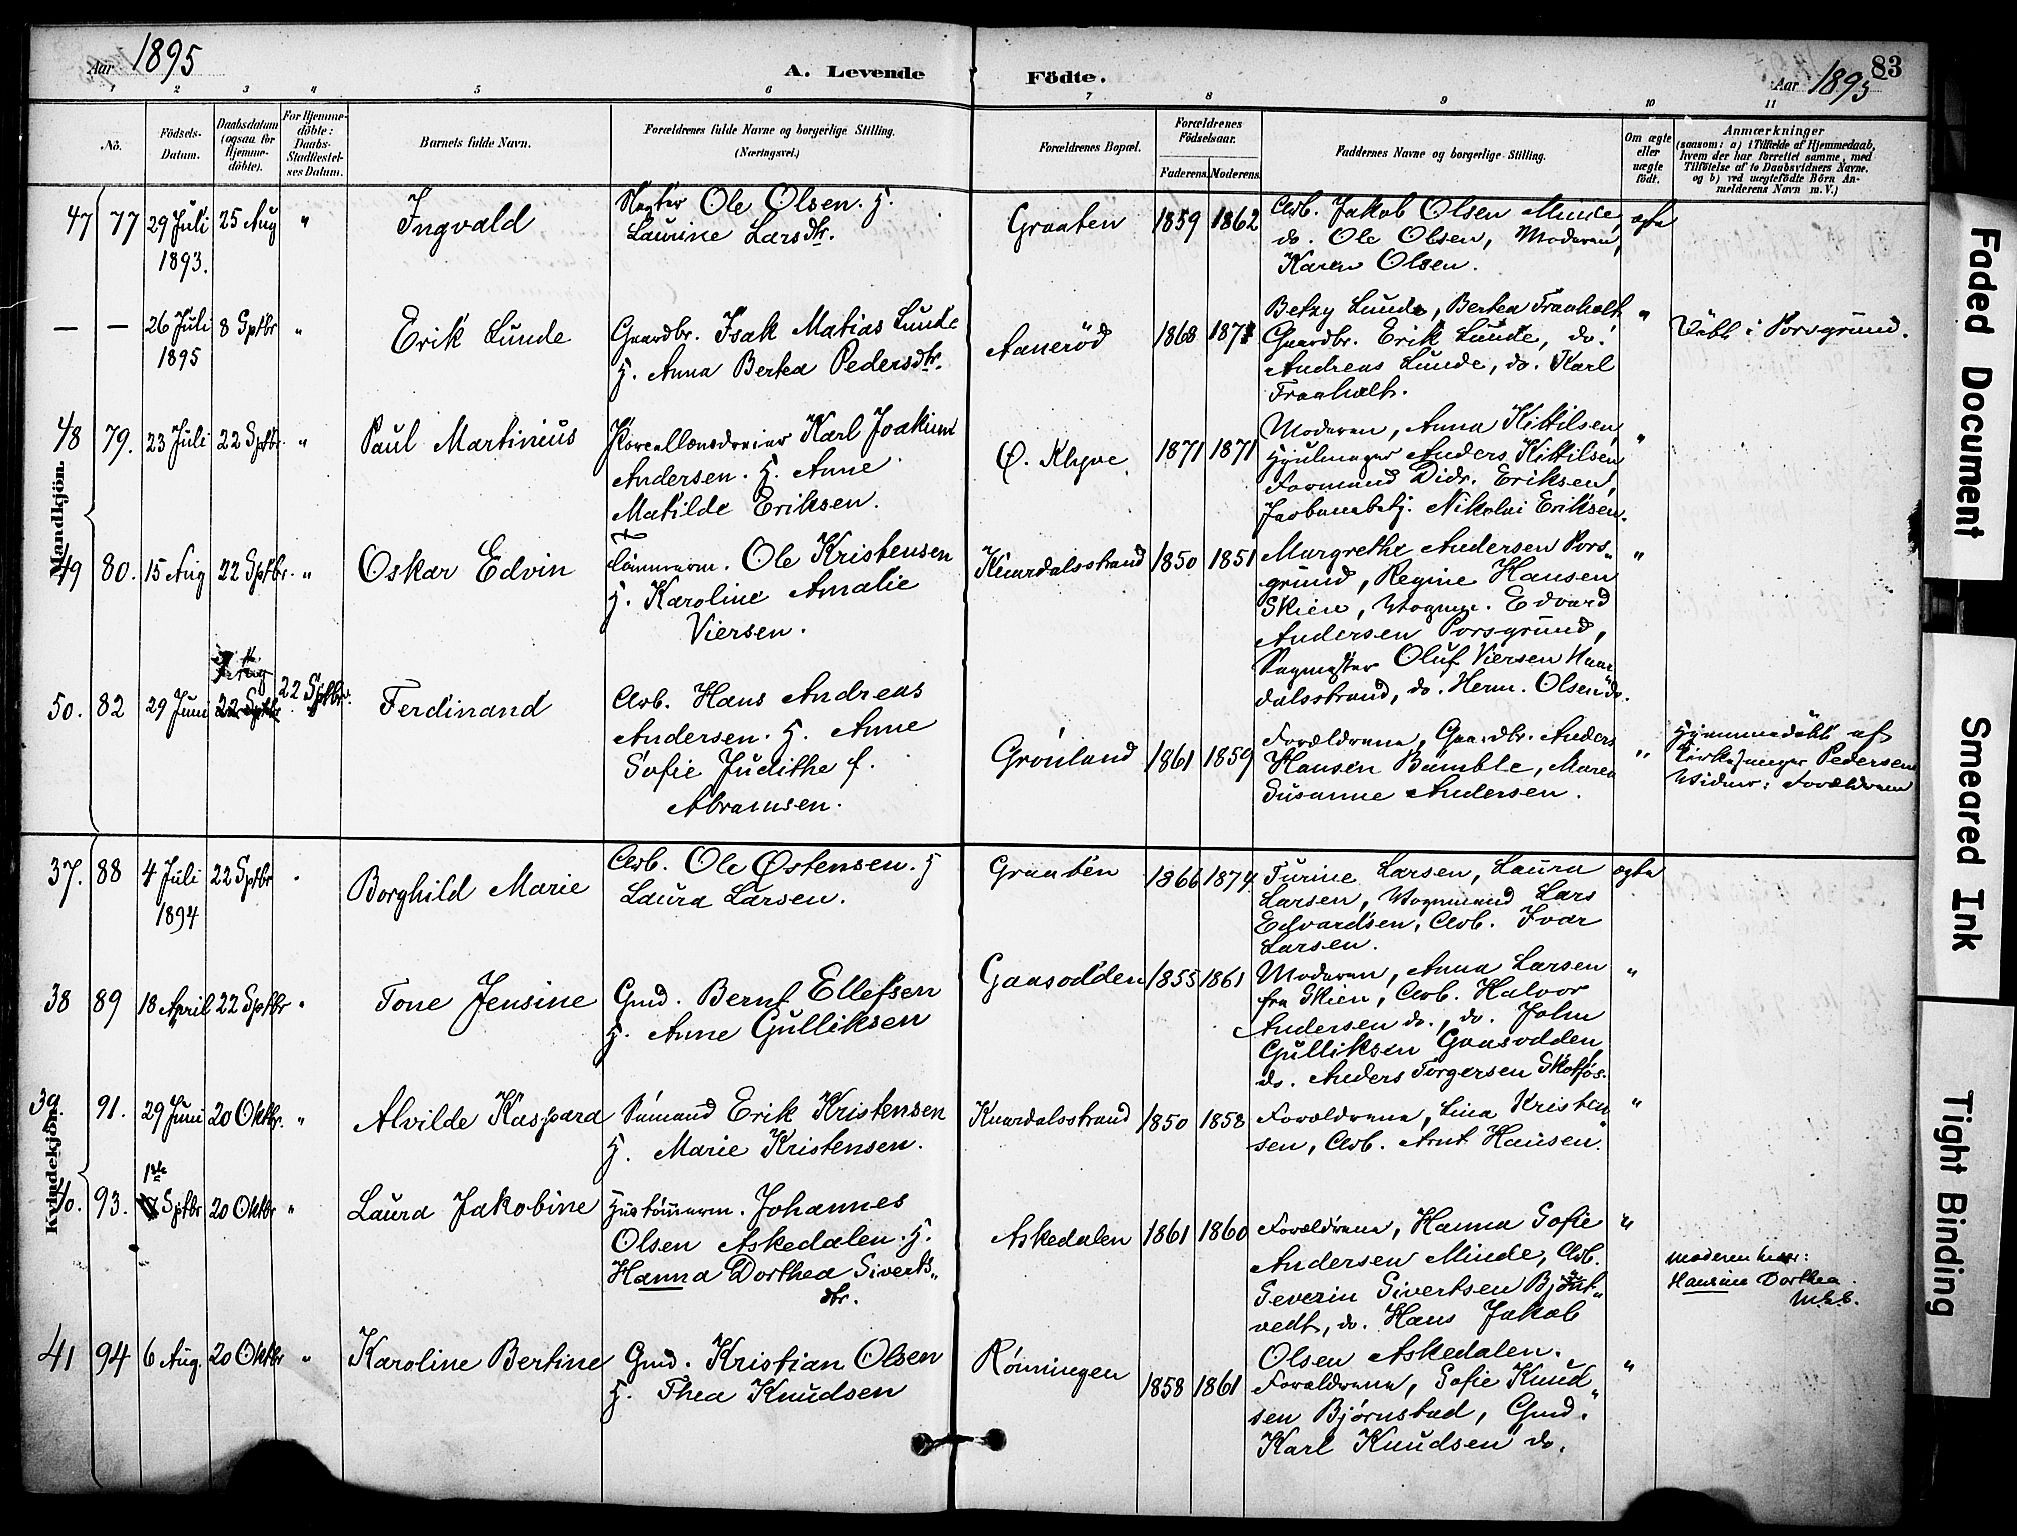 Aar 1895
A. Levende Födte.
Aar 1895
83
1 2 3 4 5 6 7 8 9 10 11
No.
Födsels-Datum.
Daabsdatum (ogsaa for Hjemme-döbte).
For Hjemme-döbte: Daabs-Stadfæstel-ses Datum.
Barnets fulde Navn.
Forældrenes fulde Navne og borgerlige Stilling. (Næringsvei.)
Forældrenes Bopæl.
Forældrenes Födselsaar.
Faderens. Moderens.
Faddernes Navne og borgerlige Stilling.
Om ægte eller uægte födt.
Anmærkninger
(saasom: a) i Tilfælde af Hjemmedaab, hvem der har forrettet samme, med Tilföielse af to Daabsvidners Navne, og b) ved uegtefödte Börn An-melderens Navn m. V.)
Mandkjön.
47 77 29 Juli 1893. 25 Aug " Ingvald
Ole Olsen. H.
Laurine Larsdtr.
Graaten 1859 1862
Arb. Jakob Olsen Minde,
do. Ole Olsen, Moderen,
Karen Olsen.
ægte
— — 26 Juli 1895 8 Sptbr " Erik Lunde
Gaardbr. Isak Matias Lunde
H. Anna Bertea Pedersdtr.
Aanerød 1868 1871
Betzy Lunde, Bertea Fraaholt
Gaardbr. Erik Lunde, do.
Andreas Lunde, do. Karl
Fraaholt.
"
Døbt i Porsgrund.
48 79. 23 Juli 22 Sptbr. " Paul Martinius
Porcellænsdreier Karl Joakim
Andersen. H. Anne
Matilde Eriksen.
Ø. Klyve 1871 1871
Moderen, Anna Kittilsen,
Hjulmager Anders Kittilsen
Formand Didr. Eriksen,
Jærbanebetj. Nikolai Eriksen.
"
49 80. 15 Aug 22 Sptbr. " Oskar Edvin
Tømmerm. Ole Kristensen
H. Karoline Amalie
Viersen.
Knardalsstrand 1850 1851
Margrethe Andersen Pors-
grund, Regine Hansen
Skien, Vognm. Edvard
Andersen Porsgrund,
Sagmester Oluf Viersen Knar
dalsstrand, do. Herm. Olsen do.
"
50. 82 29 Juni 22 Sptbr 22 Sptbr. Ferdinand
Arb. Hans Andreas
Andersen. H. Anne
Sofie Judithe f.
Abramsen.
Grønland 1861 1859
Forældrene, Gaardbr. Anders
Hansen Bamble, Maren
Susanne Andersen.
"
Hjemmedøbt af
Kirkesanger Pedersen
Vidner: Forældrene
Kvindekjön.
37. 88 4 Juli 1894 22 Sptbr " Borghild Marie
Arb. Ole Østensen. H
Laura Larsen.
Graaten 1866 1874
Turine Larsen, Laura
Larsen, Vognmand Lars
Edvardsen, Arb. Ivar
Larsen.
ægte
38 89 18 April 22 Sptbr " Tone Jensine
Gmd. Bernt Ellefsen
H. Anne Gulliksen
Gaasodden 1855 1861
Moderen, Anna Larsen
fra Skien, Arb. Halvor
Andersen do., do. John
Gulliksen Gaasodden,
do. Anders Torgersen Skotfos.
"
39 91. 29 Juni 20 Oktbr. " Alvilde Kaspara
Sømand Erik Kristensen
H. Marie Kristensen.
Knardalsstrand 1850 1858
Forældrene, Lina Kristen
sen, Arb. Arnt Hansen.
"
40. 93. 1ste Sptbr 20 Oktbr " Laura Jakobine
Hustømerm. Johannes
Olsen Askedalen. H.
Hanna Dorthea Siverts-
dtr.
Askedalen 1861 1860
Forældrene, Hanna Sofie
Andersen Minde, Arb.
Severin Sivertsen Bjønt-
vedt, do. Hans Jakob
Olsen Askedalen.
"
moderen heter:
Hansine Dorthea
41 94 6 Aug. 20 Oktbr " Karoline Bertine
Gmd. Kristian Olsen
H. Thea Knudsen
Rønningen 1858 1861
Forældrene, Sofie Knud-
sen Bjørnstad, Gmd.
Karl Knudsen do.
"
Faded Document
Smeared Ink
Tight Binding